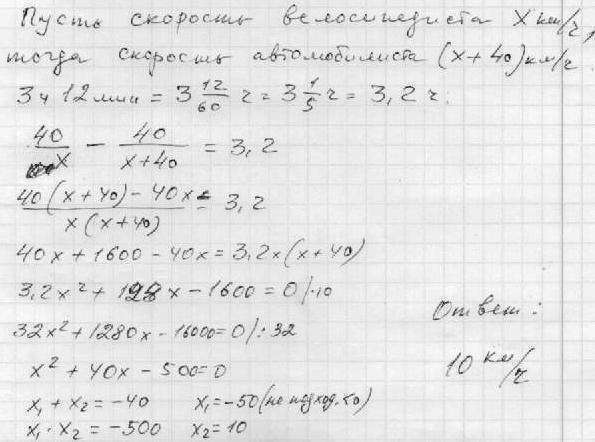 Пусть скорость велосипедиста x км/ч,
тогда скорость автомобилиста (x+40) км/ч.
3 ч 12 мин = 3 12/60 ч = 3 1/5 ч = 3,2 ч.
40/x - 40/(x+40) = 3,2
(40(x+40) - 40x)/(x(x+40)) = 3,2
40x + 1600 - 40x = 3,2x(x+40)
3,2x² + 128x - 1600 = 0 |·10
32x² + 1280x - 16000 = 0 |: 32
x² + 40x - 500 = 0
x₁ + x₂ = -40 x₁ = -50 (не подход. <0)
x₁ · x₂ = -500 x₂ = 10
Ответ:
10 км/ч